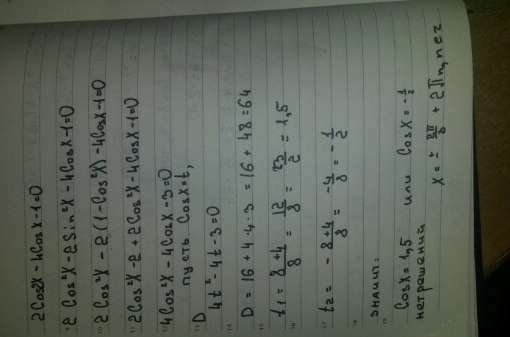 2cos2x-4cosx-1=0
2cos²x-2sin²x-4cosx-1=0
2cos²x-2(1-cos²x)-4cosx-1=0
2cos²x-2+2cos²x-4cosx-1=0
4cos²x-4cosx-3=0
пусть cosx=t,
D
4t²-4t-3=0
D=16+4·4·3=16+48=64
t₁=8+4/8=12/8=3/2=1,5
t₂=-8+4/8=-4/8=-1/2
значит:
cosx=1,5 или cosx=-1/2
нет решений x=±2π/3+2πn, n∈z